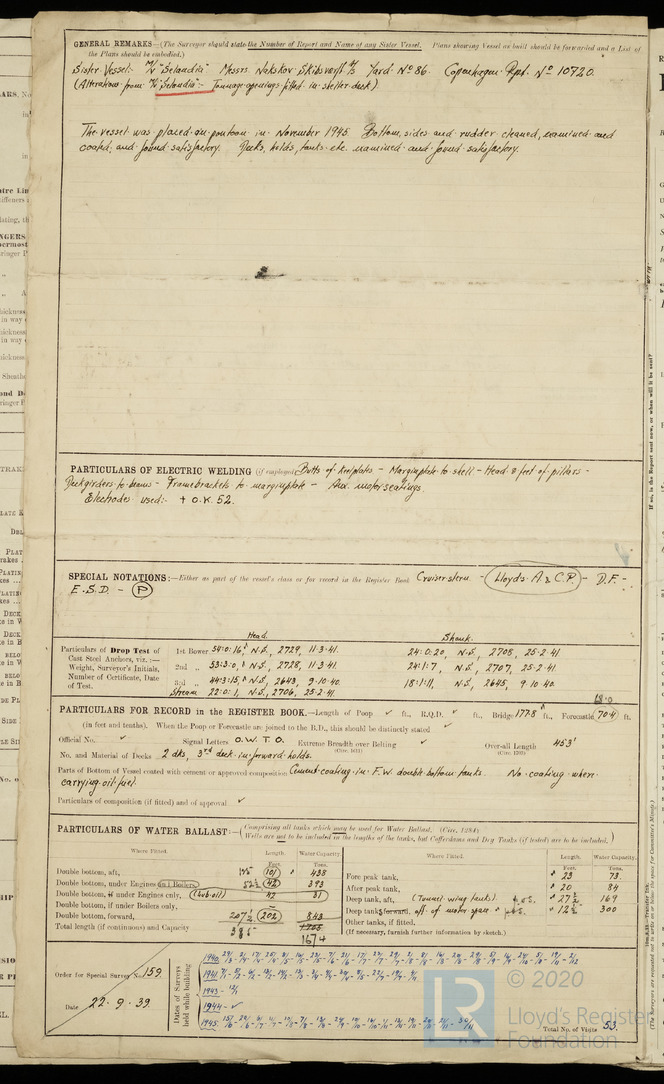 GENERAL REMARKS—(The Surveyor should state the Number of Report and Name of any Sister Vessel. Plans showing Vessel as built should be forwarded and a List of
the Plans should be embodied.)
Sister Vessel:- M/V "Selandia" Messrs Nakskov Skibsværft A/S Yard No 86. Copenhagen Rpt. No 10720.
(Alterations from M/V "Selandia":- Tonnage openings fitted in shelter deck)
The vessel was placed on pontoon in November 1945. Bottom, sides and rudder cleaned, examined and
coated, and found satisfactory. Decks, holds, tanks etc. examined and found satisfactory.
PARTICULARS OF ELECTRIC WELDING (if employed) Butts of keelplates - Marginplate to shell - Head & feet of pillars -
Deckgirders to beams - Framebrackets to marginplate - Aux. motorseatings.
Electrodes used:- + O.K. 52.
SPECIAL NOTATIONS:—Either as part of the vessel's class or for record in the Register Book Cruiser stern. - Lloyds A. & C.P. - D.F. -
E.S.D. - P
Head. Shank.
Particulars of Drop Test of
Cast Steel Anchors, viz.:—
Weight, Surveyor's Initials,
Number of Certificate, Date
of Test.
1st Bower 54:0:16, N.S., 2729, 11-3-41. 24:0:20, N.S., 2708, 25-2-41.
2nd „ 53:3:0, N.S., 2728, 11-3-41. 24:1:7, N.S., 2707, 25-2-41.
3rd „ 44:3:15, N.S., 2643, 9-10-40. 18:1:11, N.S., 2645, 9-10-40.
Stream 22:0:1, N.S., 2706, 25-2-41.
PARTICULARS FOR RECORD in the REGISTER BOOK.—Length of Poop ✓ ft., R.Q.D. ✓ ft., Bridge 177.8 ft., Forecastle 70.4 ft.
(in feet and tenths). When the Poop or Forecastle are joined to the B.D., this should be distinctly stated ✓
Official No. ✓ Signal Letters O.W.T.O. Extreme Breadth over Belting ✓ Over-all Length 453'
No. and Material of Decks 2 dks, 3rd deck in forward holds.
Parts of Bottom of Vessel coated with cement or approved composition Cement coating in F.W. double bottom tanks. No coating where
carrying oil fuel.
Particulars of composition (if fitted) and of approval ✓
PARTICULARS OF WATER BALLAST:—(Comprising all tanks which may be used for Water Ballast. (Circ. 1284)
Wells are not to be included in the lengths of the tanks, but Cofferdams and Dry Tanks (if tested) are to be included.)
Where Fitted. Length. Water Capacity. Where Fitted. Length. Water Capacity.
Feet. Tons. Feet. Tons.
Double bottom, aft, 101 438
Double bottom, under Engines and Boilers, 52½ 42 393
Double bottom, if under Engines only, (Lub. oil) 42 31
Double bottom, if under Boilers only,
Double bottom, forward, 207½ 202 843
Total length (if continuous) and Capacity 385 1705
1674
Fore peak tank, 23 73
After peak tank, 20 84
Deep tank, aft, (Tunnel wing tanks) 27½ 169
Deep tank, forward, aft. of motor space 12½ 300
Other tanks, if fitted,
(If necessary, furnish further information by sketch.)
Order for Special Survey No. 159.
Date 22-9-39
Dates of Surveys
held while building
1940
1941
1943 - 12/1
1944 - ✓
1945
Total No. of Visits 53.
© 2020
LR
Lloyd's Register
Foundation